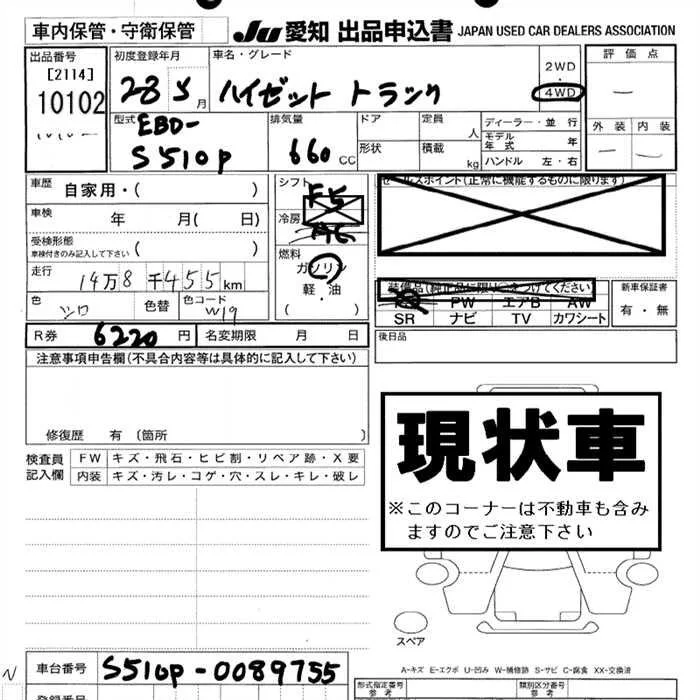 車内保管・守衛保管
JU 愛知 出品申込書 JAPAN USED CAR DEALERS ASSOCIATION
出品番号
[2114]
10102
初度登録年月
28 5 月
車名・グレード
ハイゼット トラック
2WD
・
4WD
評価点
—
外装 内装
— —
型式
EBD-
S510P
排気量
660 CC
ドア
形状
定員
人
積載
kg
ディーラー・並行
モデル
年式 年
ハンドル 左・右
車歴 自家用・( )
車検 年 月( 日)
受検形態
車検付きのみ記入して下さい ( )
走行 14万8千455km
色 シロ 色替 色コード W19
シフト F5
冷房 AC
燃料
ガソリン
・
軽・油
( )
セールスポイント(正常に機能するものに限ります)
装備品(純正品に限り○をつけてください)
PW エアB AW
SR ナビ TV カワシート
新車保証書
有・無
R券 6220 円 名変期限 月 日
後日品
注意事項申告欄(不具合内容等は具体的に記入して下さい)
修復歴 有 (箇所 )
検査員
記入欄
FW キズ・飛石・ヒビ割・リペア跡・X要
内装 キズ・汚レ・コゲ・穴・スレ・キレ・破レ
現状車
※このコーナーは不動車も含み
ますのでご注意下さい
スペア
A-キズ E-エクボ U-凹み W-補修跡 S-サビ C-腐食 XX-交換済
N
車台番号 S510P-0089755
登録番号
形式指定番号
参考
類別区分番号
参考